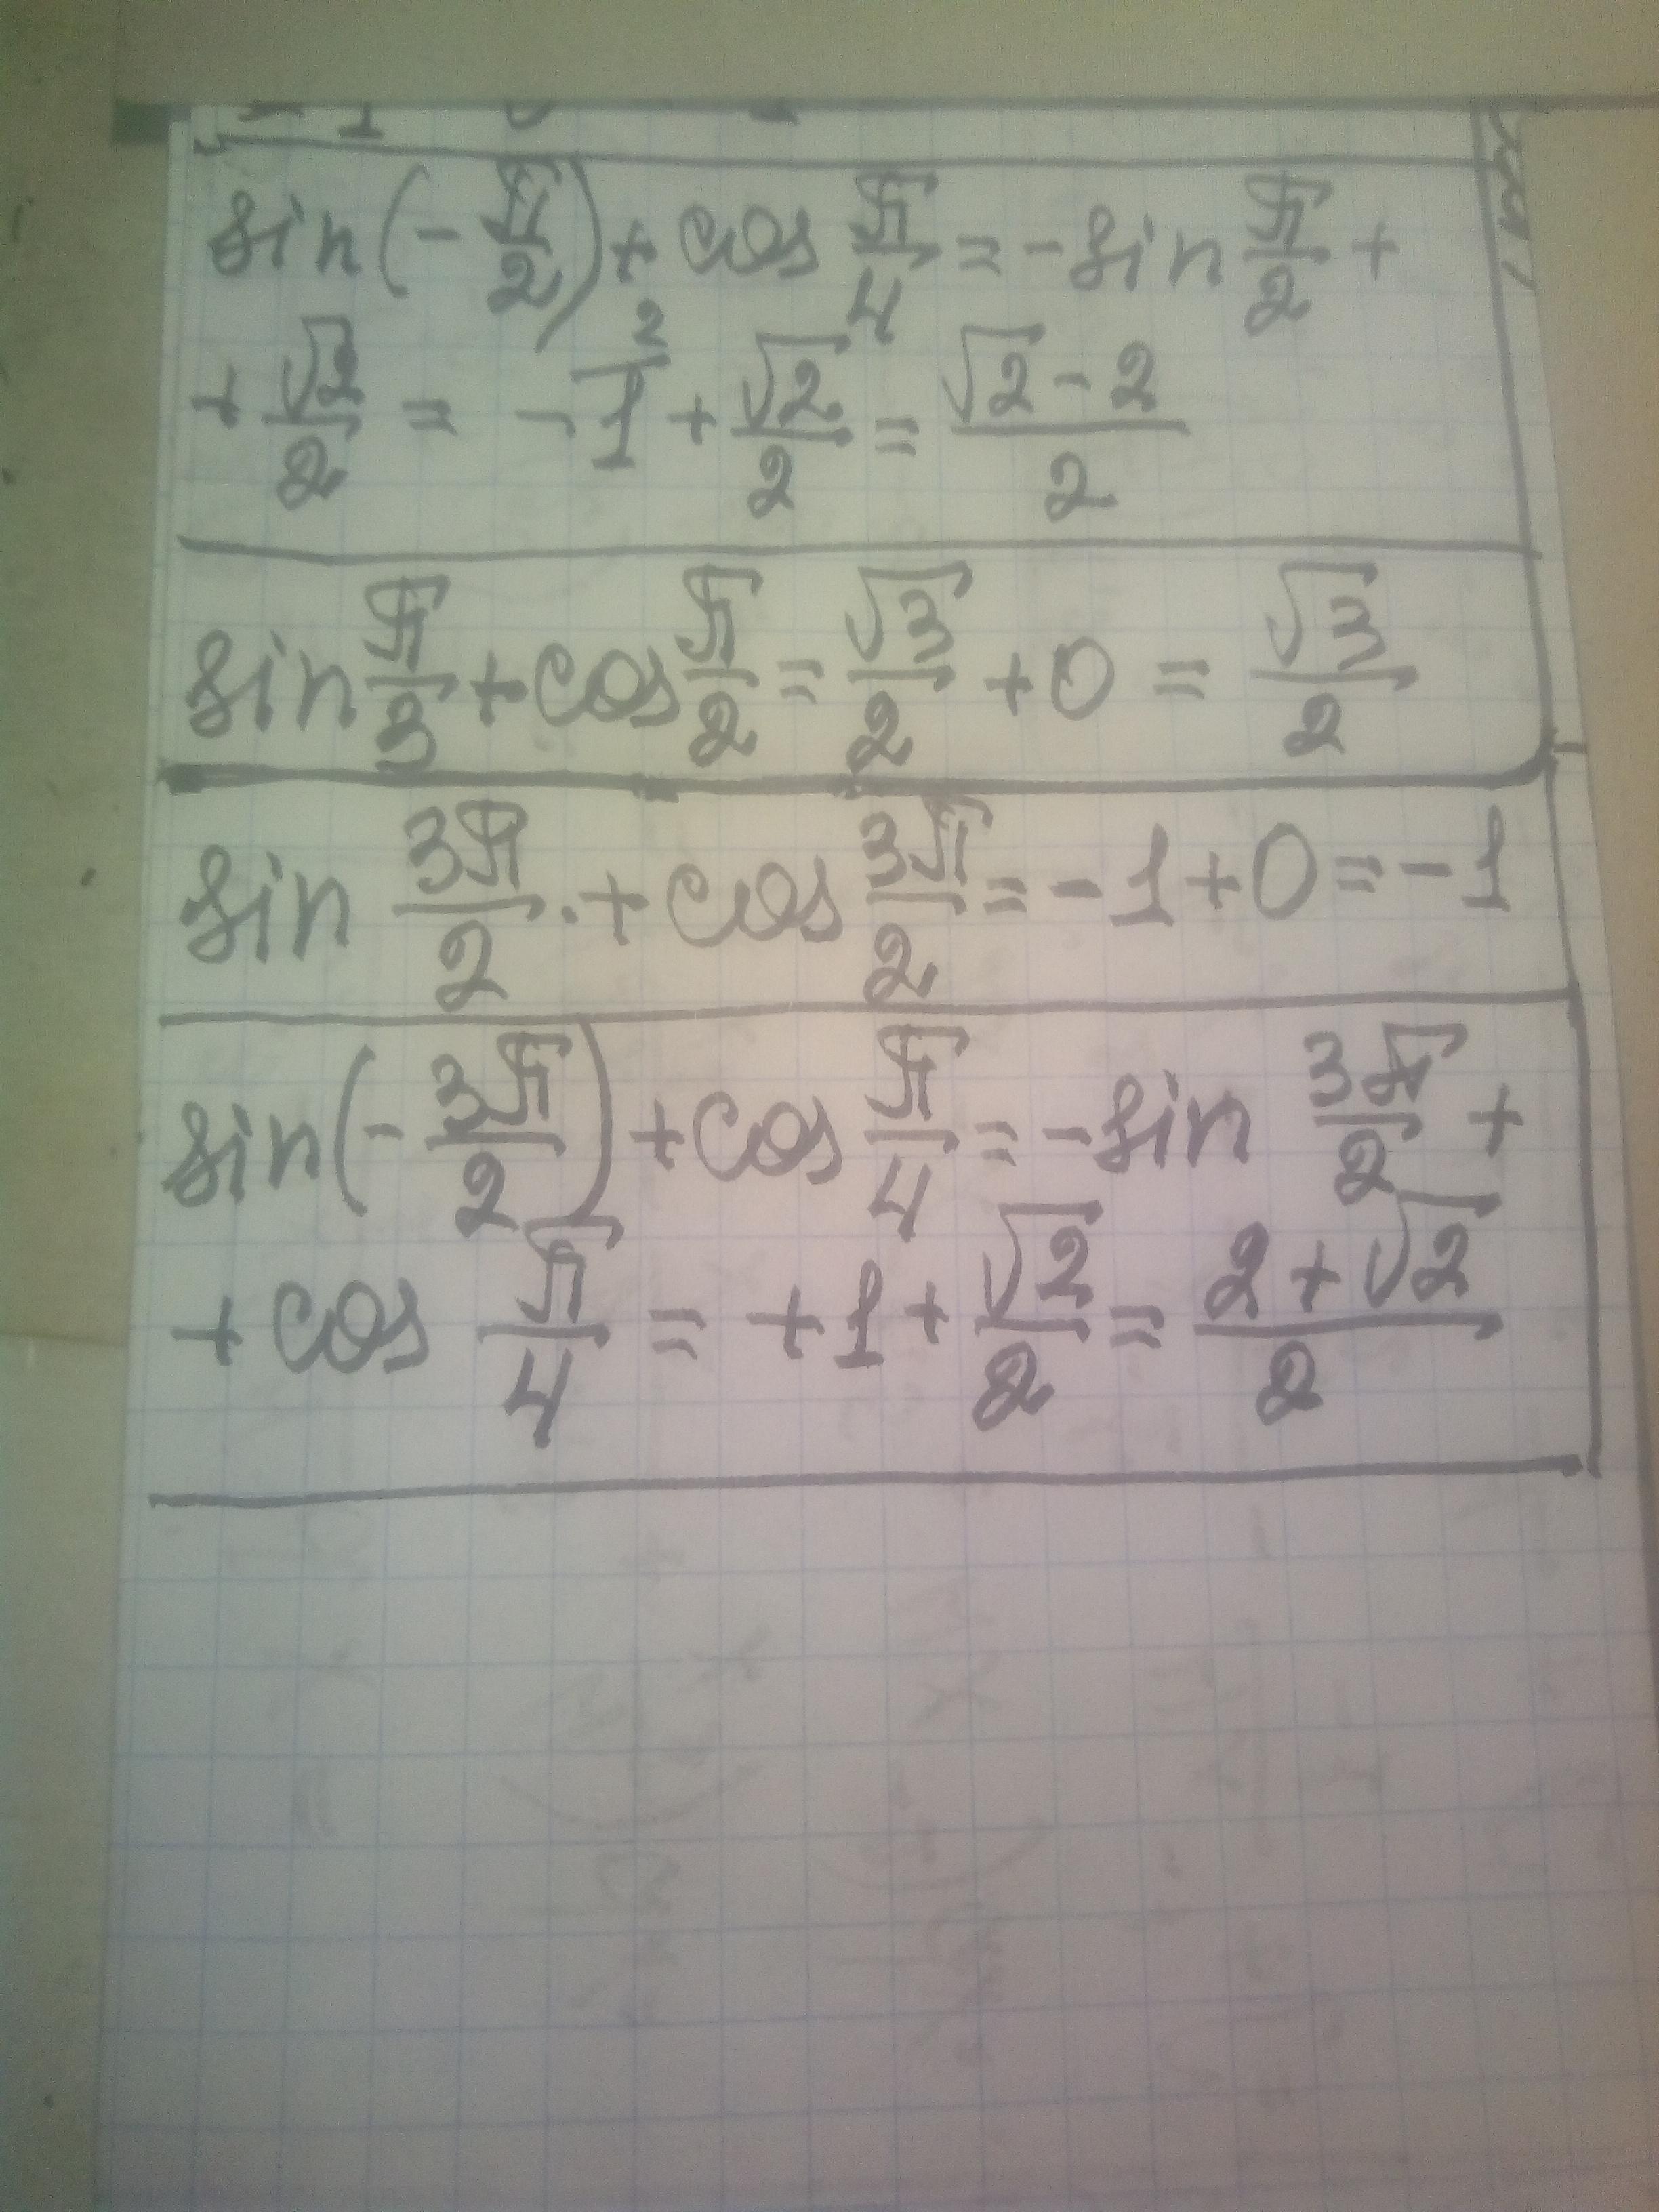 sin(-π/2) + cos π/4 = -sin π/2 +
+ √2/2 = -1^2 + √2/2 = (√2 - 2)/2
sin π/3 + cos π/2 = √3/2 + 0 = √3/2
sin 3π/2 . + cos 3π/2 = -1 + 0 = -1
sin(-3π/2) + cos π/4 = -sin 3π/2 +
+ cos π/4 = +1 + √2/2 = (2 + √2)/2